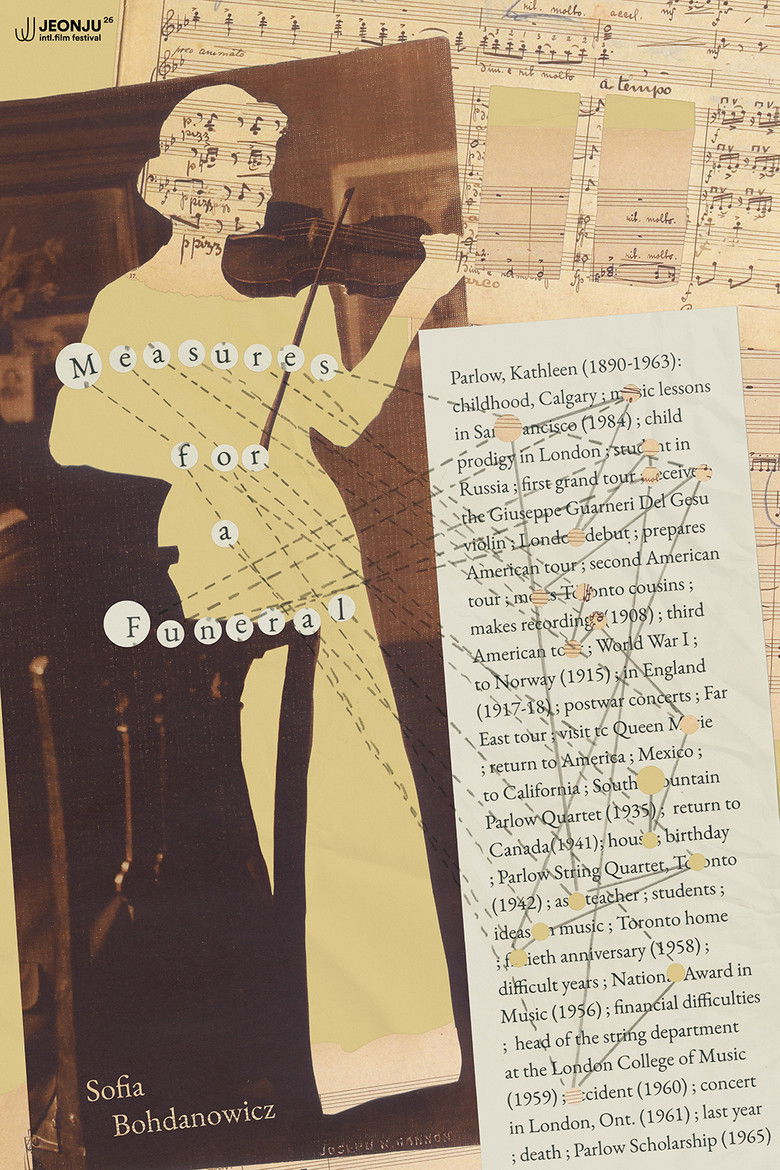 JEONJU 26
intl.film festival
rit. molto.
accel.
poco animato
dim. e rit molto
a tempo
p.
pizz
p
ppizz
ppizz
rit. molto.
rit. molto.
dim e rit molto
arco
37.
Measures
for
a
Funeral
Parlow, Kathleen (1890-1963):
childhood, Calgary ; music lessons
in San Francisco (1984) ; child
prodigy in London ; student in
Russia ; first grand tour ; receives
the Giuseppe Guarneri Del Gesu
violin ; London debut ; prepares
American tour ; second American
tour ; meets Toronto cousins ;
makes recordings (1908) ; third
American tour ; World War I ;
to Norway (1915) ; in England
(1917-18) ; postwar concerts ; Far
East tour ; visit to Queen Marie
; return to America ; Mexico ;
to California ; South Mountain
Parlow Quartet (1935) ; return to
Canada(1941); house ; birthday
; Parlow String Quartet, Toronto
(1942) ; as teacher ; students ;
ideas on music ; Toronto home
; fiftieth anniversary (1958) ;
difficult years ; National Award in
Music (1956) ; financial difficulties
; head of the string department
at the London College of Music
(1959) ; accident (1960) ; concert
in London, Ont. (1961) ; last year
; death ; Parlow Scholarship (1965)
Sofia
Bohdanowicz
JOSEPH N. GANNON